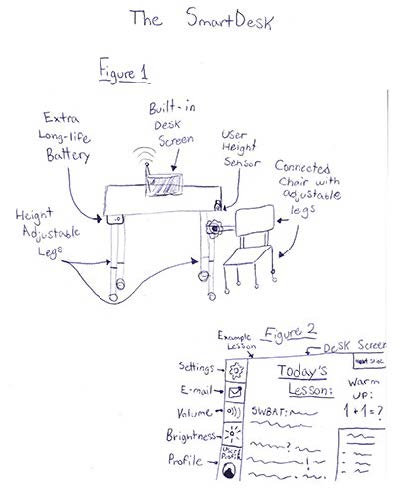 The SmartDesk
Figure 1
Extra
Long-life
Battery
Built-in
Desk
Screen
User
Height
Sensor
Connected
Chair with
adjustable
legs
Height
Adjustable
Legs
Figure 2
Example
Lesson
Desk Screen
Settings
E-mail
Volume
Brightness
Profile
User
Profile
Today's
Lesson:
SWBAT:
?
!
Next Slide
Warm
UP:
1+1=?